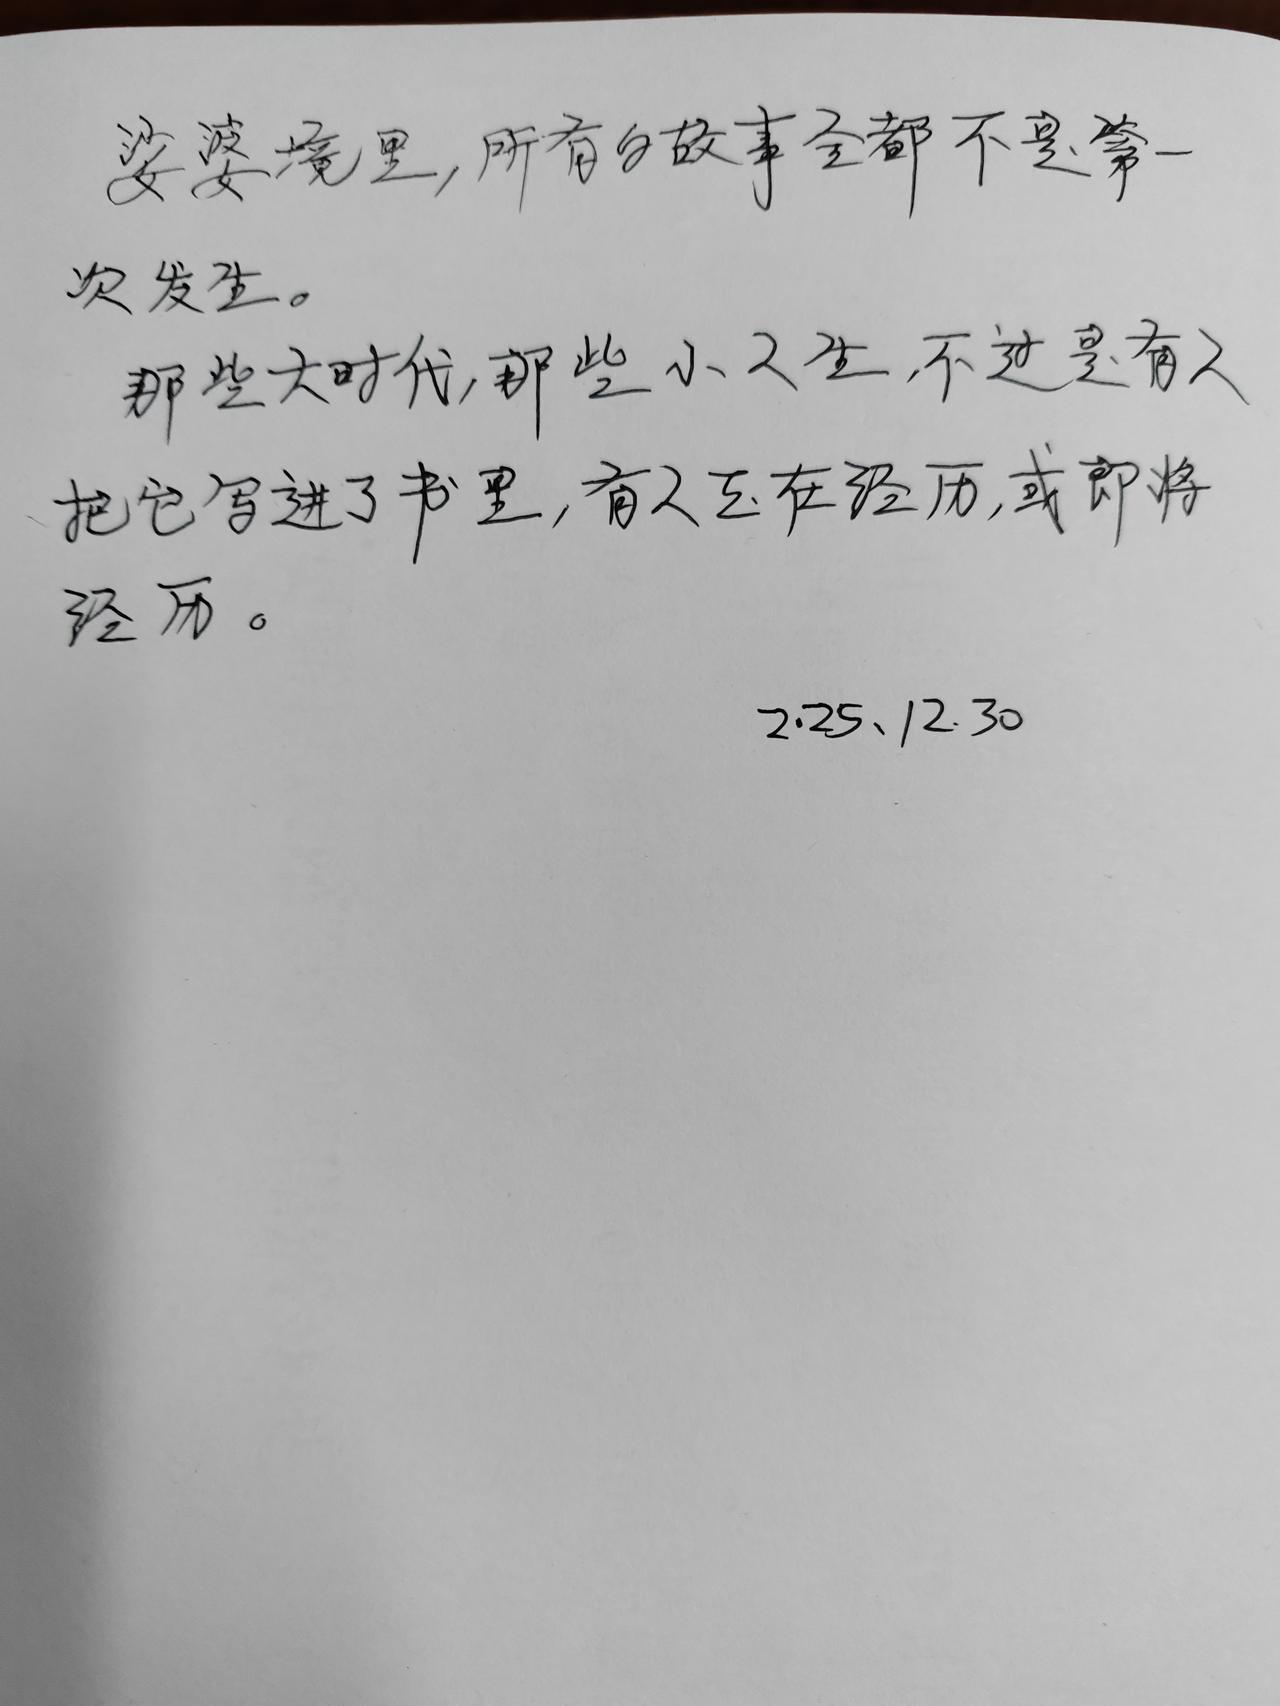 娑婆境里,所有的故事全都不是第一
次发生。
那些大时代,那些小人生,不过是有人
把它写进了书里,有人正在经历,或即将
经历。
2025、12.30